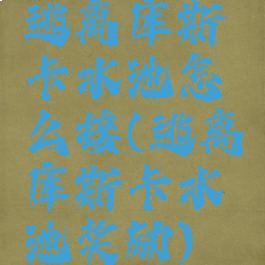 逃离库斯
卡水池怎
么接(逃离
库斯卡水
池奖励)